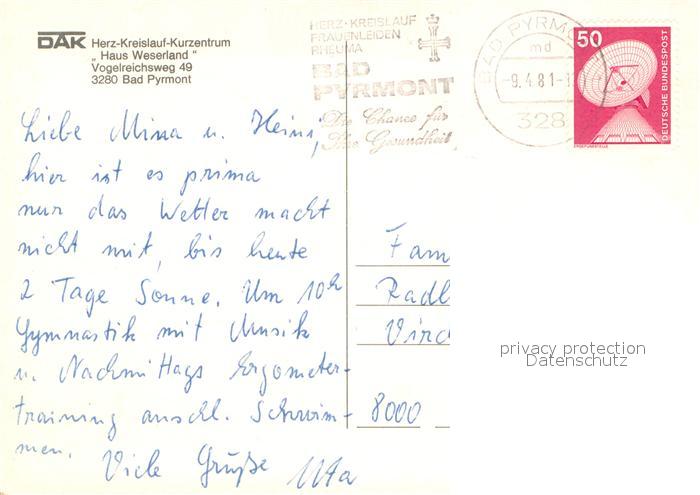 DAK Herz-Kreislauf-Kurzentrum
„Haus Weserland"
Vogelreichsweg 49
3280 Bad Pyrmont
HERZ-KREISLAUF
FRAUENLEIDEN
RHEUMA
BAD
PYRMONT
Die Chance für
Ihre Gesundheit
BAD PYRMO
md
-9.4.81-1
328
50
DEUTSCHE BUNDESPOST
ERDEFUNKSTELLE
Liebe Minna u. Heini,
hier ist es prima
nur das Wetter macht
nicht mit, bis heute
2 Tage Sonne. Um 10h
Gymnastik mit Musik
u. Nachmittags Ergometer-
training anschl. Schwim-
men. Viele Grüße Uta
Fam
Radl
Virc
8000
privacy protection
Datenschutz